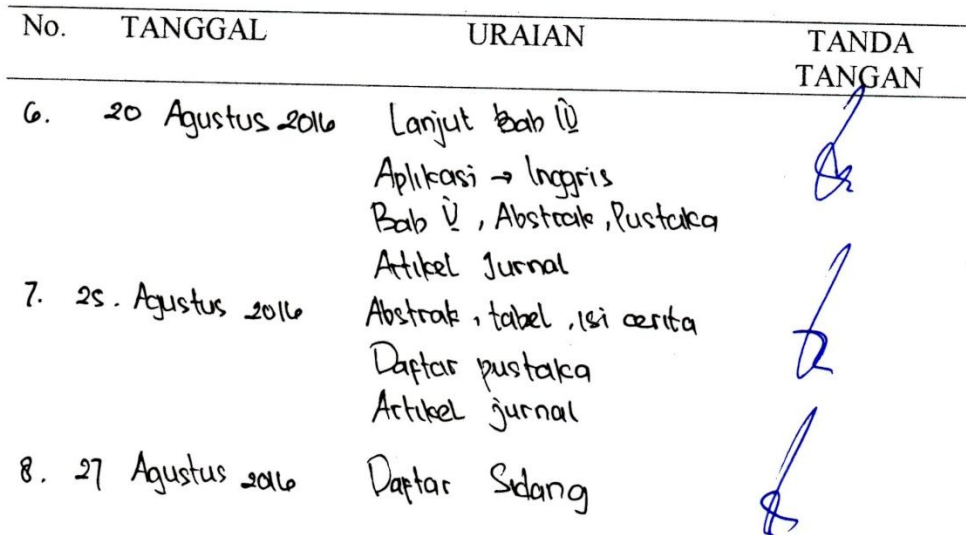 No. TANGGAL URAIAN TANDA
TANGAN
6. 20 Agustus 2016 Lanjut Bab IV
Aplikasi → Inggris
Bab V, Abstrak, Pustaka
Artikel Jurnal
7. 25. Agustus 2016 Abstrak, tabel, isi cerita
Daftar pustaka
Artikel jurnal
8. 27 Agustus 2016 Daftar Sidang